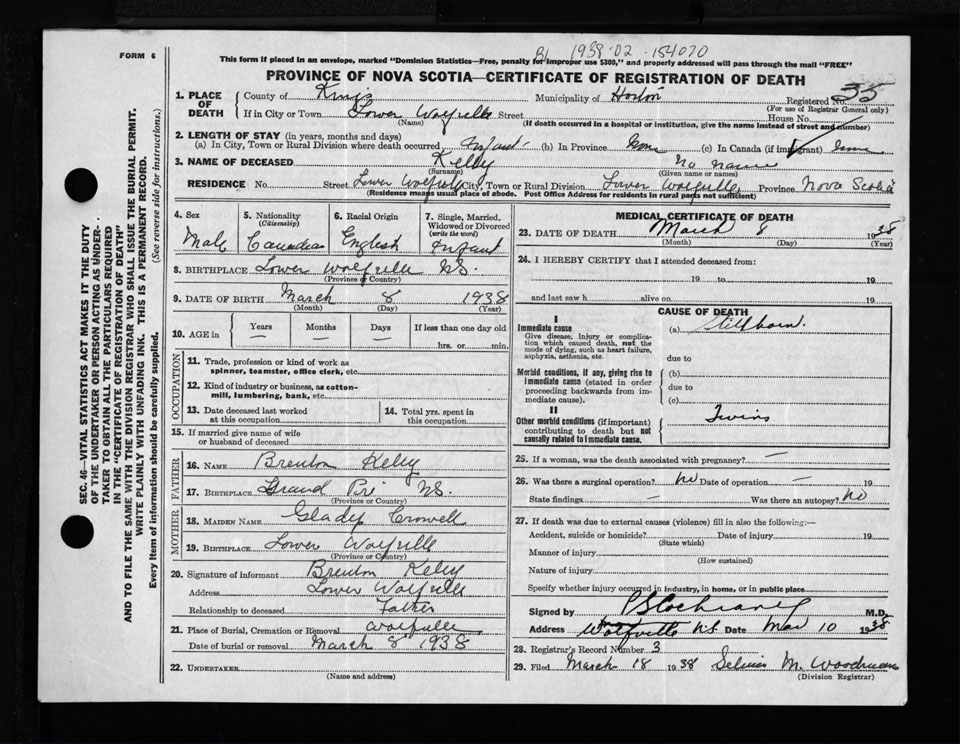 B1 1938-02-154070
FORM 6
This form if placed in an envelope, marked "Dominion Statistics—Free, penalty for improper use $300," and properly addressed will pass through the mail "FREE"
PROVINCE OF NOVA SCOTIA—CERTIFICATE OF REGISTRATION OF DEATH
1. PLACE OF DEATH County of Kings Municipality of Horton Registered No. 35
(For use of Registrar General only)
If in City or Town Lower Wolfville Street House No.
(Name) (If death occurred in a hospital or institution, give the name instead of street and number)
2. LENGTH OF STAY (in years, months and days)
(a) In City, Town or Rural Division where death occurred, Infant (b) In Province (c) In Canada (if immigrant)
3. NAME OF DECEASED Kelly no name
(Surname) (Given name or names)
RESIDENCE No. Street Lower Wolfville City, Town or Rural Division Lower Wolfville Province Nova Scotia
(Residence means usual place of abode. Post Office Address for residents in rural parts not sufficient)
4. Sex 5. Nationality (Citizenship) 6. Racial Origin 7. Single, Married, Widowed or Divorced (write the word)
Male Canadian English Infant
8. BIRTHPLACE Lower Wolfville NS.
(Province or Country)
9. DATE OF BIRTH March 8 1938
(Month) (Day) (Year)
10. AGE in Years Months Days If less than one day old
— — — hrs. or min.
OCCUPATION
11. Trade, profession or kind of work as
spinner, teamster, office clerk, etc.
12. Kind of industry or business, as cotton-
mill, lumbering, bank, etc.
13. Date deceased last worked at this occupation 14. Total yrs. spent in this occupation.
15. If married give name of wife
or husband of deceased
FATHER
16. NAME Brenton Kelly
17. BIRTHPLACE Grand Pré NS.
(Province or Country)
MOTHER
18. MAIDEN NAME Gladys Crowell
19. BIRTHPLACE Lower Wolfville
(Province or Country)
20. Signature of informant Brenton Kelly
Address Lower Wolfville
Relationship to deceased Father
21. Place of Burial, Cremation or Removal Wolfville
Date of burial or removal March 8 1938
22. UNDERTAKER
(Name and address)
MEDICAL CERTIFICATE OF DEATH
23. DATE OF DEATH March 8 1938
(Month) (Day) (Year)
24. I HEREBY CERTIFY that I attended deceased from:
19 to 19
and last saw h alive on 19
CAUSE OF DEATH
I
Immediate cause (a) Stillborn.
Give disease, injury or complica-
tion which caused death, not the
mode of dying, such as heart failure,
asphyxia, asthenia, etc. due to
Morbid conditions, if any, giving rise to (b)
immediate cause (stated in order due to
proceeding backwards from im-
mediate cause). (c)
II
Other morbid conditions (if important) Twins
contributing to death but not
causally related to immediate cause.
25. If a woman, was the death associated with pregnancy? —
26. Was there a surgical operation? no Date of operation —
State findings — Was there an autopsy? no
27. If death was due to external causes (violence) fill in also the following:—
Accident, suicide or homicide? Date of injury 19
(State which)
Manner of injury
(How sustained)
Nature of injury
Specify whether injury occurred in industry, in home, or in public place.
Signed by P S Cochrane M.D.
Address Wolfville N.S. Date Mar 10 1938
28. Registrar's Record Number 3
29. Filed March 18 1938 M. Woodman
(Division Registrar)
SEC. 46—VITAL STATISTICS ACT MAKES IT THE DUTY
OF THE UNDERTAKER OR PERSON ACTING AS UNDER-
TAKER TO OBTAIN ALL THE PARTICULARS REQUIRED
IN THE "CERTIFICATE OF REGISTRATION OF DEATH"
AND TO FILE THE SAME WITH THE DIVISION REGISTRAR WHO SHALL ISSUE THE BURIAL PERMIT.
WRITE PLAINLY WITH UNFADING INK. THIS IS A PERMANENT RECORD.
Every item of information should be carefully supplied. (See reverse side for instructions.)